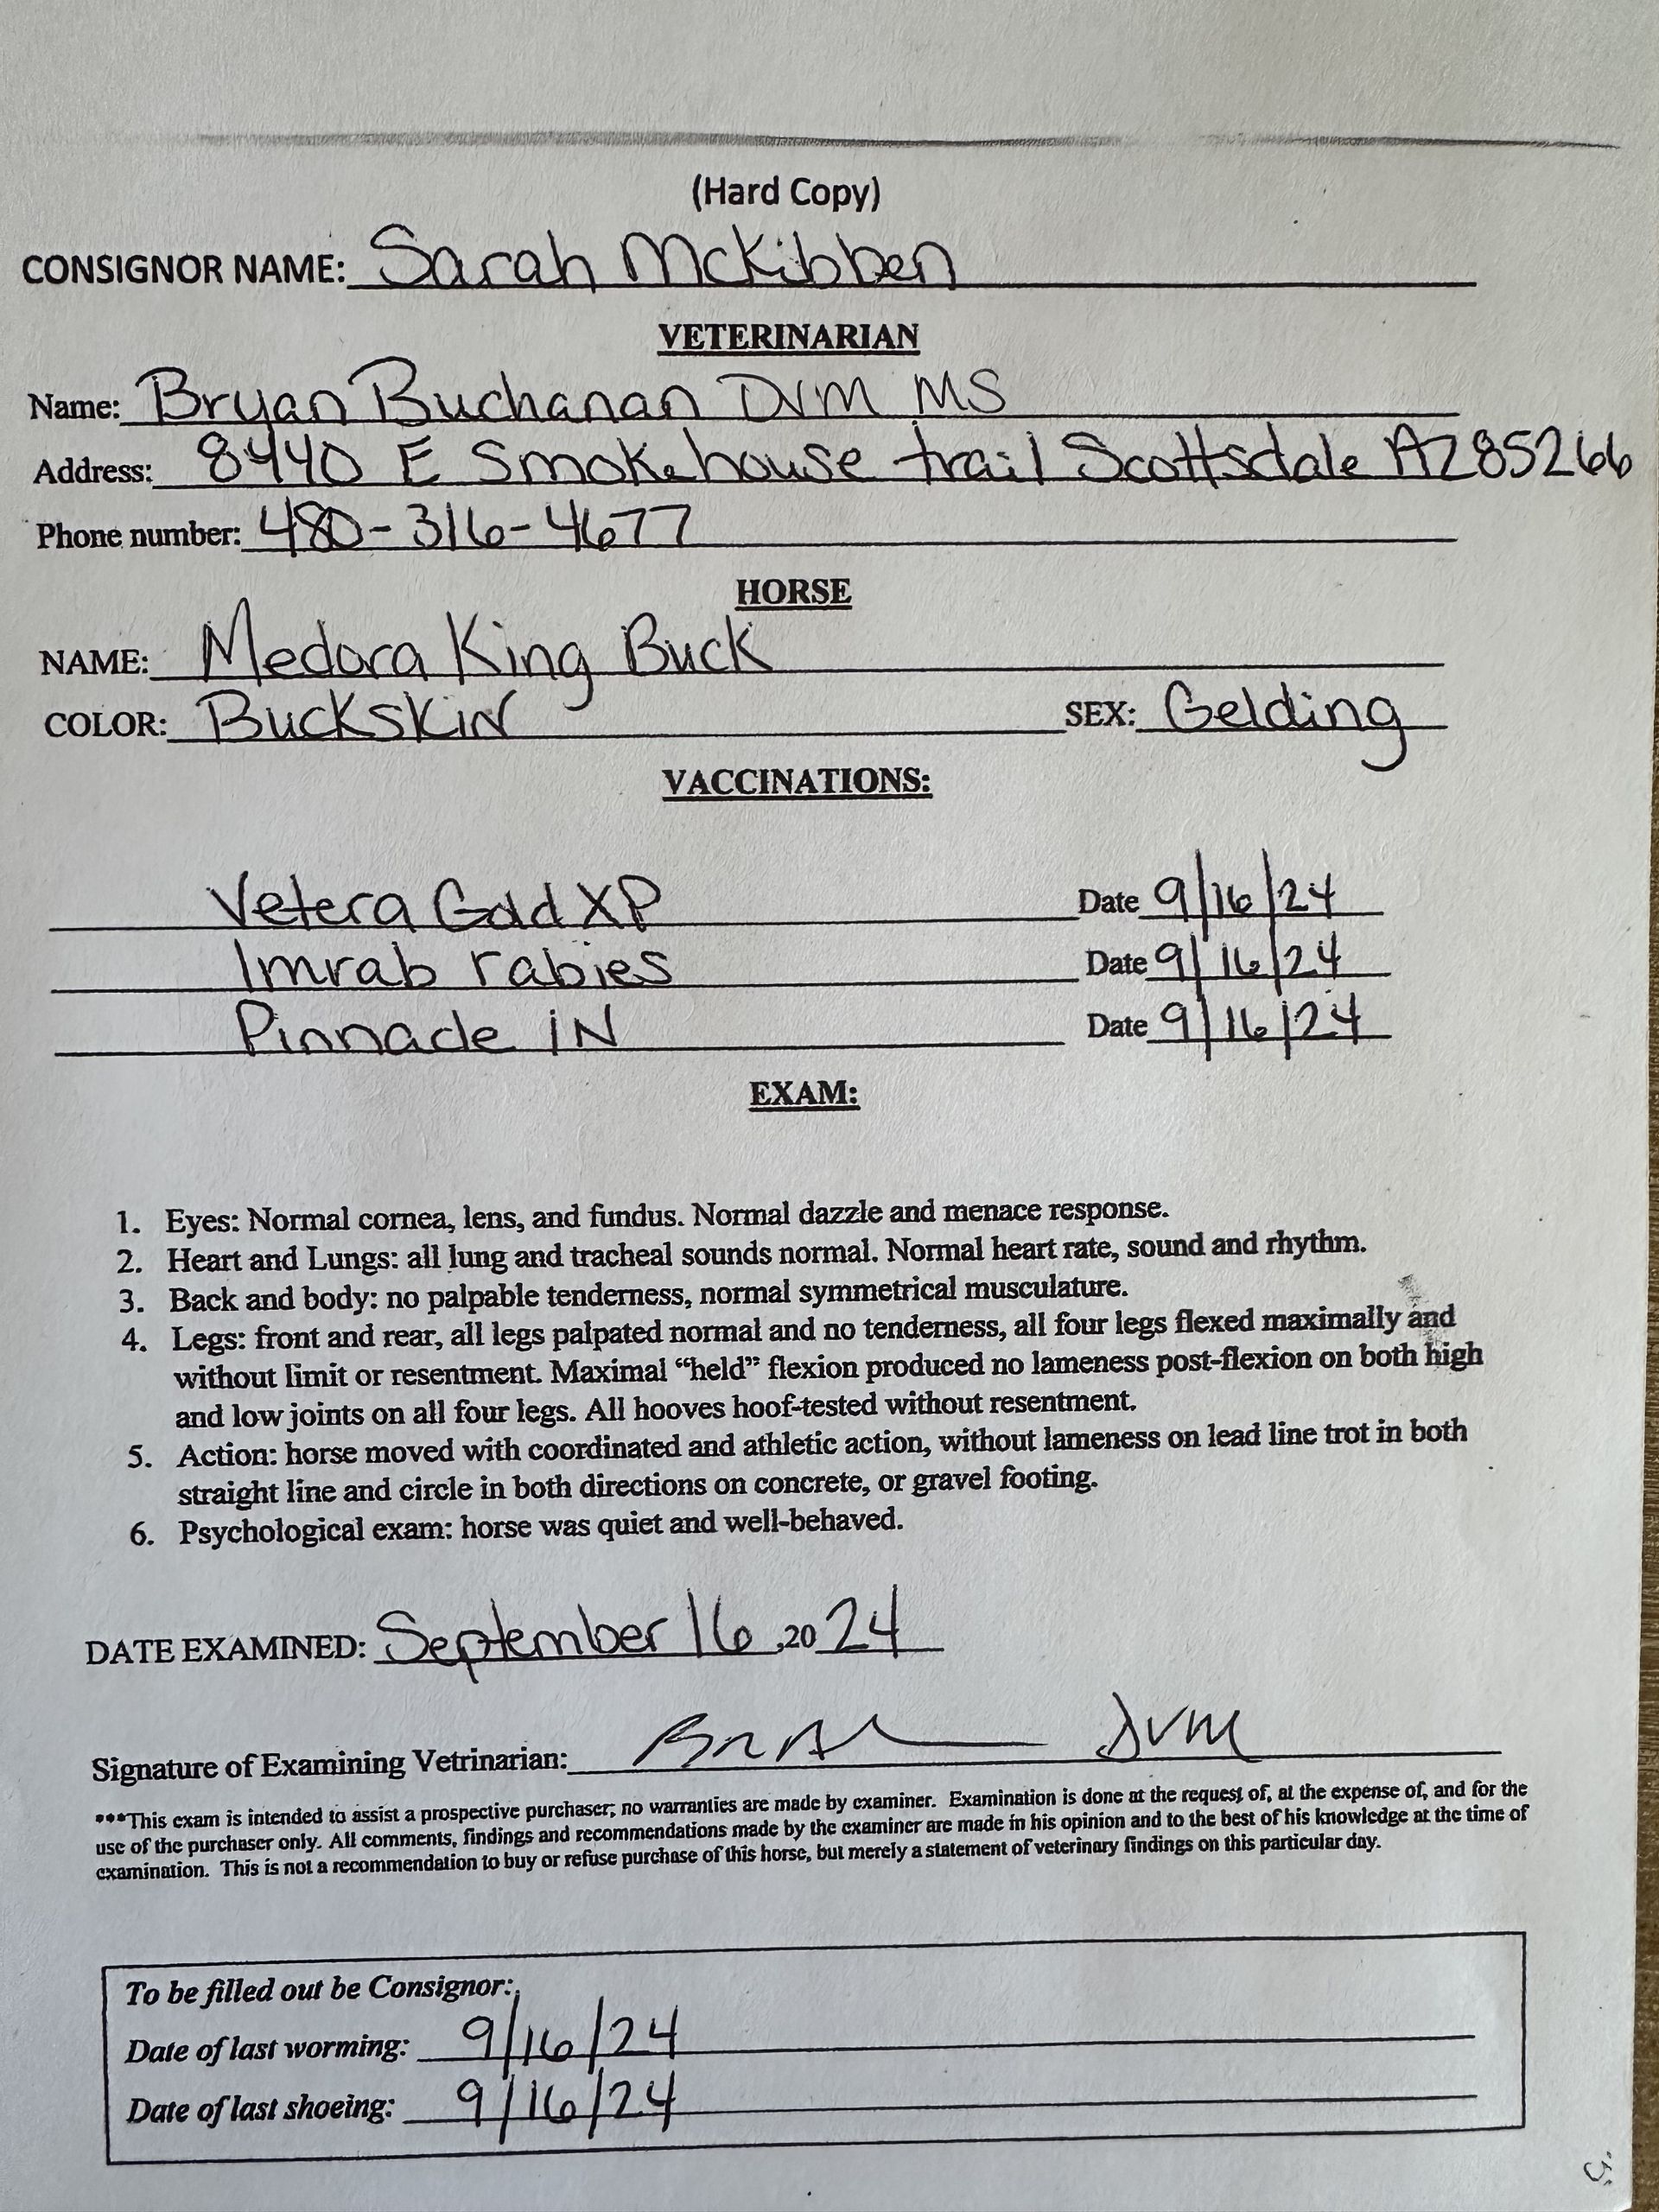 (Hard Copy)
CONSIGNOR NAME: Sarah McKibben
VETERINARIAN
Name: Bryan Buchanan DVM MS
Address: 8440 E Smokehouse trail Scottsdale AZ 85266
Phone number: 480-316-4677
HORSE
NAME: Medora King Buck
COLOR: Buckskin SEX: Gelding
VACCINATIONS:
Vetera Gold XP Date 9/16/24
Imrab rabies Date 9/16/24
Pinnacle IN Date 9/16/24
EXAM:
1. Eyes: Normal cornea, lens, and fundus. Normal dazzle and menace response.
2. Heart and Lungs: all lung and tracheal sounds normal. Normal heart rate, sound and rhythm.
3. Back and body: no palpable tenderness, normal symmetrical musculature.
4. Legs: front and rear, all legs palpated normal and no tenderness, all four legs flexed maximally and
without limit or resentment. Maximal “held” flexion produced no lameness post-flexion on both high
and low joints on all four legs. All hooves hoof-tested without resentment.
5. Action: horse moved with coordinated and athletic action, without lameness on lead line trot in both
straight line and circle in both directions on concrete, or gravel footing.
6. Psychological exam: horse was quiet and well-behaved.
DATE EXAMINED: September 16, 2024
Signature of Examining Vetrinarian: DVM
***This exam is intended to assist a prospective purchaser; no warranties are made by examiner. Examination is done at the request of, at the expense of, and for the
use of the purchaser only. All comments, findings and recommendations made by the examiner are made in his opinion and to the best of his knowledge at the time of
examination. This is not a recommendation to buy or refuse purchase of this horse, but merely a statement of veterinary findings on this particular day.
To be filled out be Consignor:
Date of last worming: 9/16/24
Date of last shoeing: 9/16/24